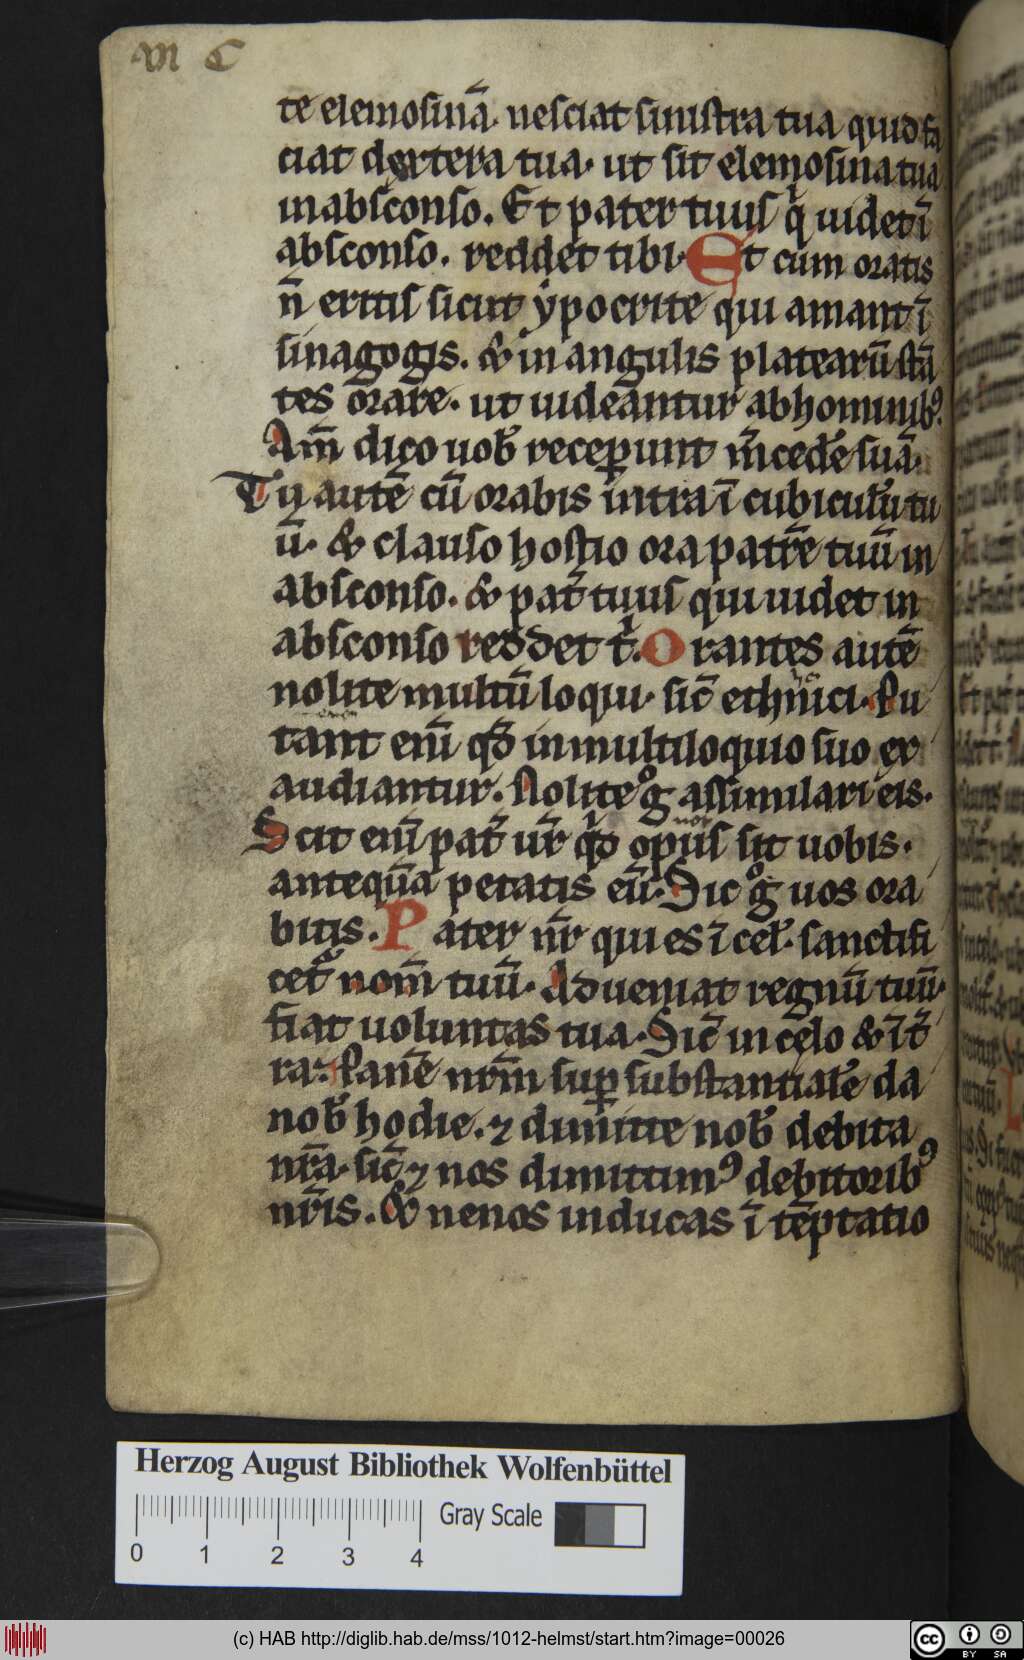 VI C
te elemosinā. nesciat sinistra tua quid fa
ciat dextera tua. ut sit elemosina tua
in absconso. Et pater tuus q̇ uidet ī
absconso. reddet tibi. Et cum oratis
n̄ eritis sicut ẏpocrite qui amant ī
sinagogis. & in angulis platearū stā
tes orare. ut uideantur ab hominibꝰ.
Am̄ dico uob̄ receperunt m̄cedē suā.
Tu autē cū orabis intra ī cubiculū tu
ū. & clauso hostio ora patrē tuū in
absconso. & pat̄ tuus qui uidet in
absconso reddet t̄. Orantes autē
nolite multū loqui. sic̄ ethnici. Pu
tant enī qd̄ in multiloquio suo ex
audiantur. Nolite gͦ assimilari eis.
Scit enī pat̄ ur̄ qd̄ opus sit uobis.
antequā petatis eū. Sic gͦ uos ora
bitis. Pater nr̄ qui es ī cel̄. sanctifi
cet᷑ nom̄ tuū. Adueniat regnū tuū.
fiat uoluntas tua. Sic̄ in celo & ī t̄
ra. Panē nrm̄ suꝑsubstantialē da
nob̄ hodie. ⁊ dimitte nob̄ debita
nr̄a. sic̄ ⁊ nos dimittimꝰ debitoribꝰ
nr̄is. & ne nos inducas ī tēptatio
Herzog August Bibliothek Wolfenbüttel
Gray Scale
0 1 2 3 4
(c) HAB http://diglib.hab.de/mss/1012-helmst/start.htm?image=00026
cc BY SA